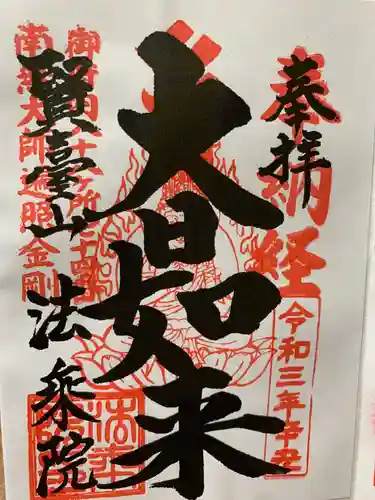 奉拝
納経
令和三年辛丑
大日如来
御府内八十八所三十四番
南無大師遍照金剛
賢臺山
法衆院